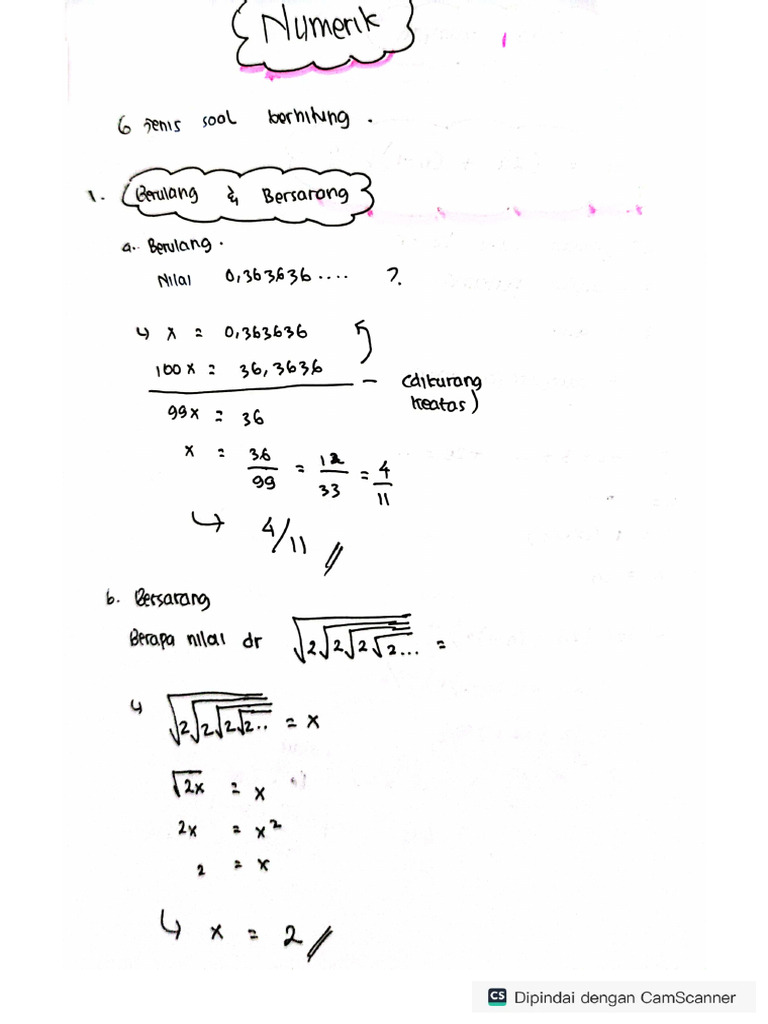 Numerik
6 jenis soal berhitung.
1. Berulang & Bersarang
a. Berulang.
Nilai 0,363636.... ?
↳ x = 0,363636
100x = 36,3636
— (dikurang keatas)
99x = 36
x = 36/99 = 12/33 = 4/11
↳ 4/11 //
b. Bersarang
Berapa nilai dr √2√2√2√2... =
↳ √2√2√2√2.. = x
√2x = x
2x = x²
2 = x
↳ x = 2 //
CS Dipindai dengan CamScanner